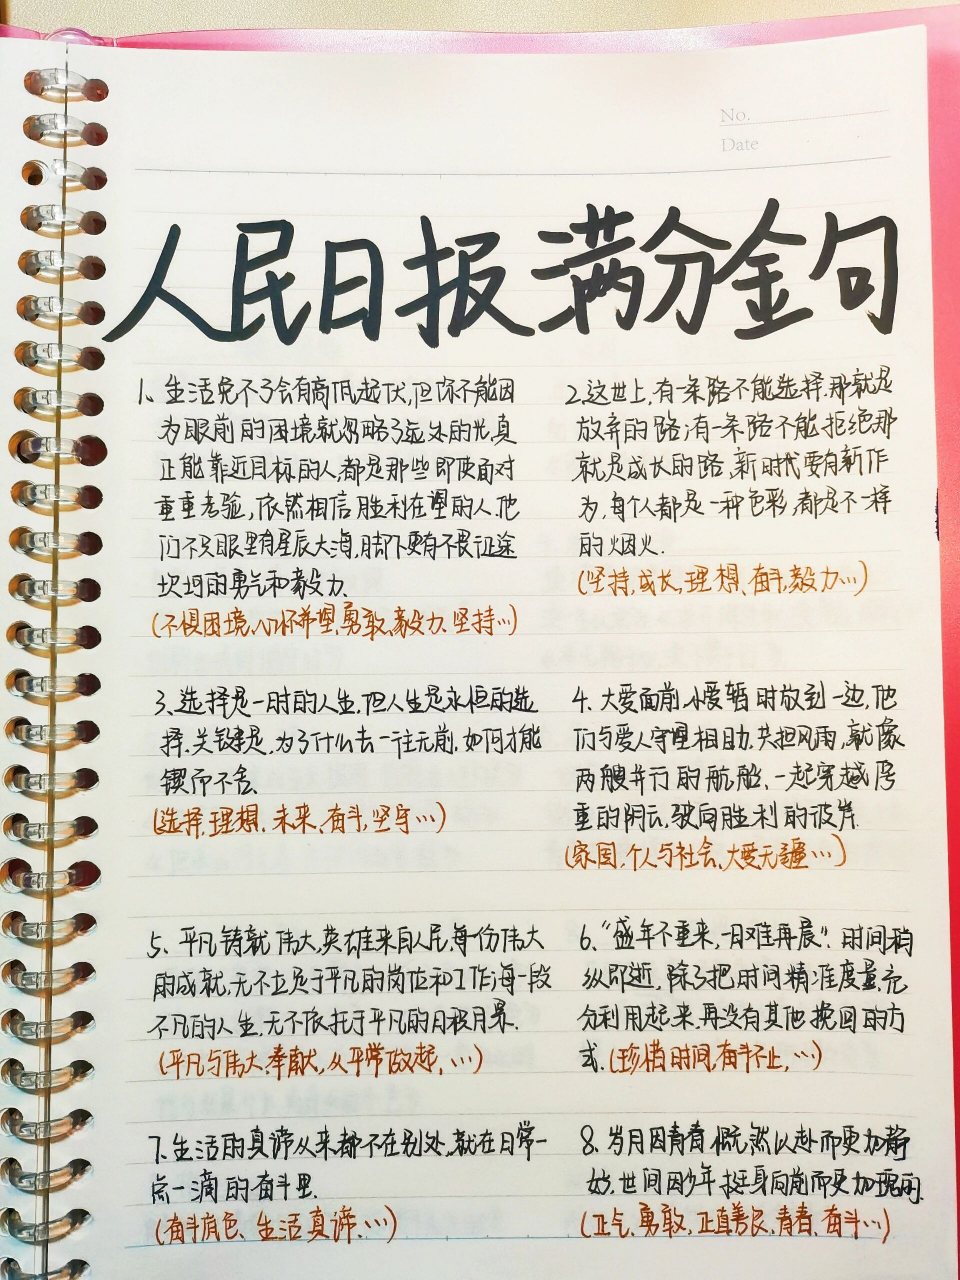 No.
Date
人民日报满分金句
1、生活免不了会有高低起伏,但你不能因
为眼前的困境就忽略了远处的光,真
正能靠近目标的人,都是那些即使面对
重重考验,依然相信胜利在望的人.他
们不只眼里有星辰大海,脚下更有不畏征途
坎坷的勇气和毅力.
(不惧困境、心怀希望、勇敢、毅力、坚持…)
2.这世上,有一条路不能选择.那就是
放弃的路;有一条路不能拒绝那
就是成长的路.新时代要有新作
为,每个人都是一种色彩,都是不一样
的烟火.
(坚持,成长,理想、奋斗,毅力…)
3、选择是一时的人生,但人生是永恒的选
择.关键是,为了什么去一往无前.如何才能
锲而不舍.
(选择,理想、未来、奋斗,坚守…)
4、大爱面前,小爱暂时放到一边,他
们与爱人守望相助,共担风雨,就像
两艘并行的航船,一起穿越厚
重的阴云,驶向胜利的彼岸.
(家国、个人与社会、大爱无疆…)
5、平凡铸就伟大,英雄来自人民,每一份伟大
的成就,无不立足于平凡的岗位和工作;每一段
不凡的人生,无不依托于平凡的日积月累.
(平凡与伟大,奉献,从平常做起,…)
6、“盛年不重来,一日难再晨”.时间稍
纵即逝,除了把时间精准度量,充
分利用起来,再没有其他挽回的方
式.(珍惜时间,奋斗不止,…)
7、生活的真谛从来都不在别处,就在日常一
点一滴的奋斗里.
(奋斗底色、生活真谛、…)
8、岁月因青春慨然以赴而更加静
好,世间因少年挺身向前而更加瑰丽.
(正气、勇敢、正直善良、青春、奋斗…)